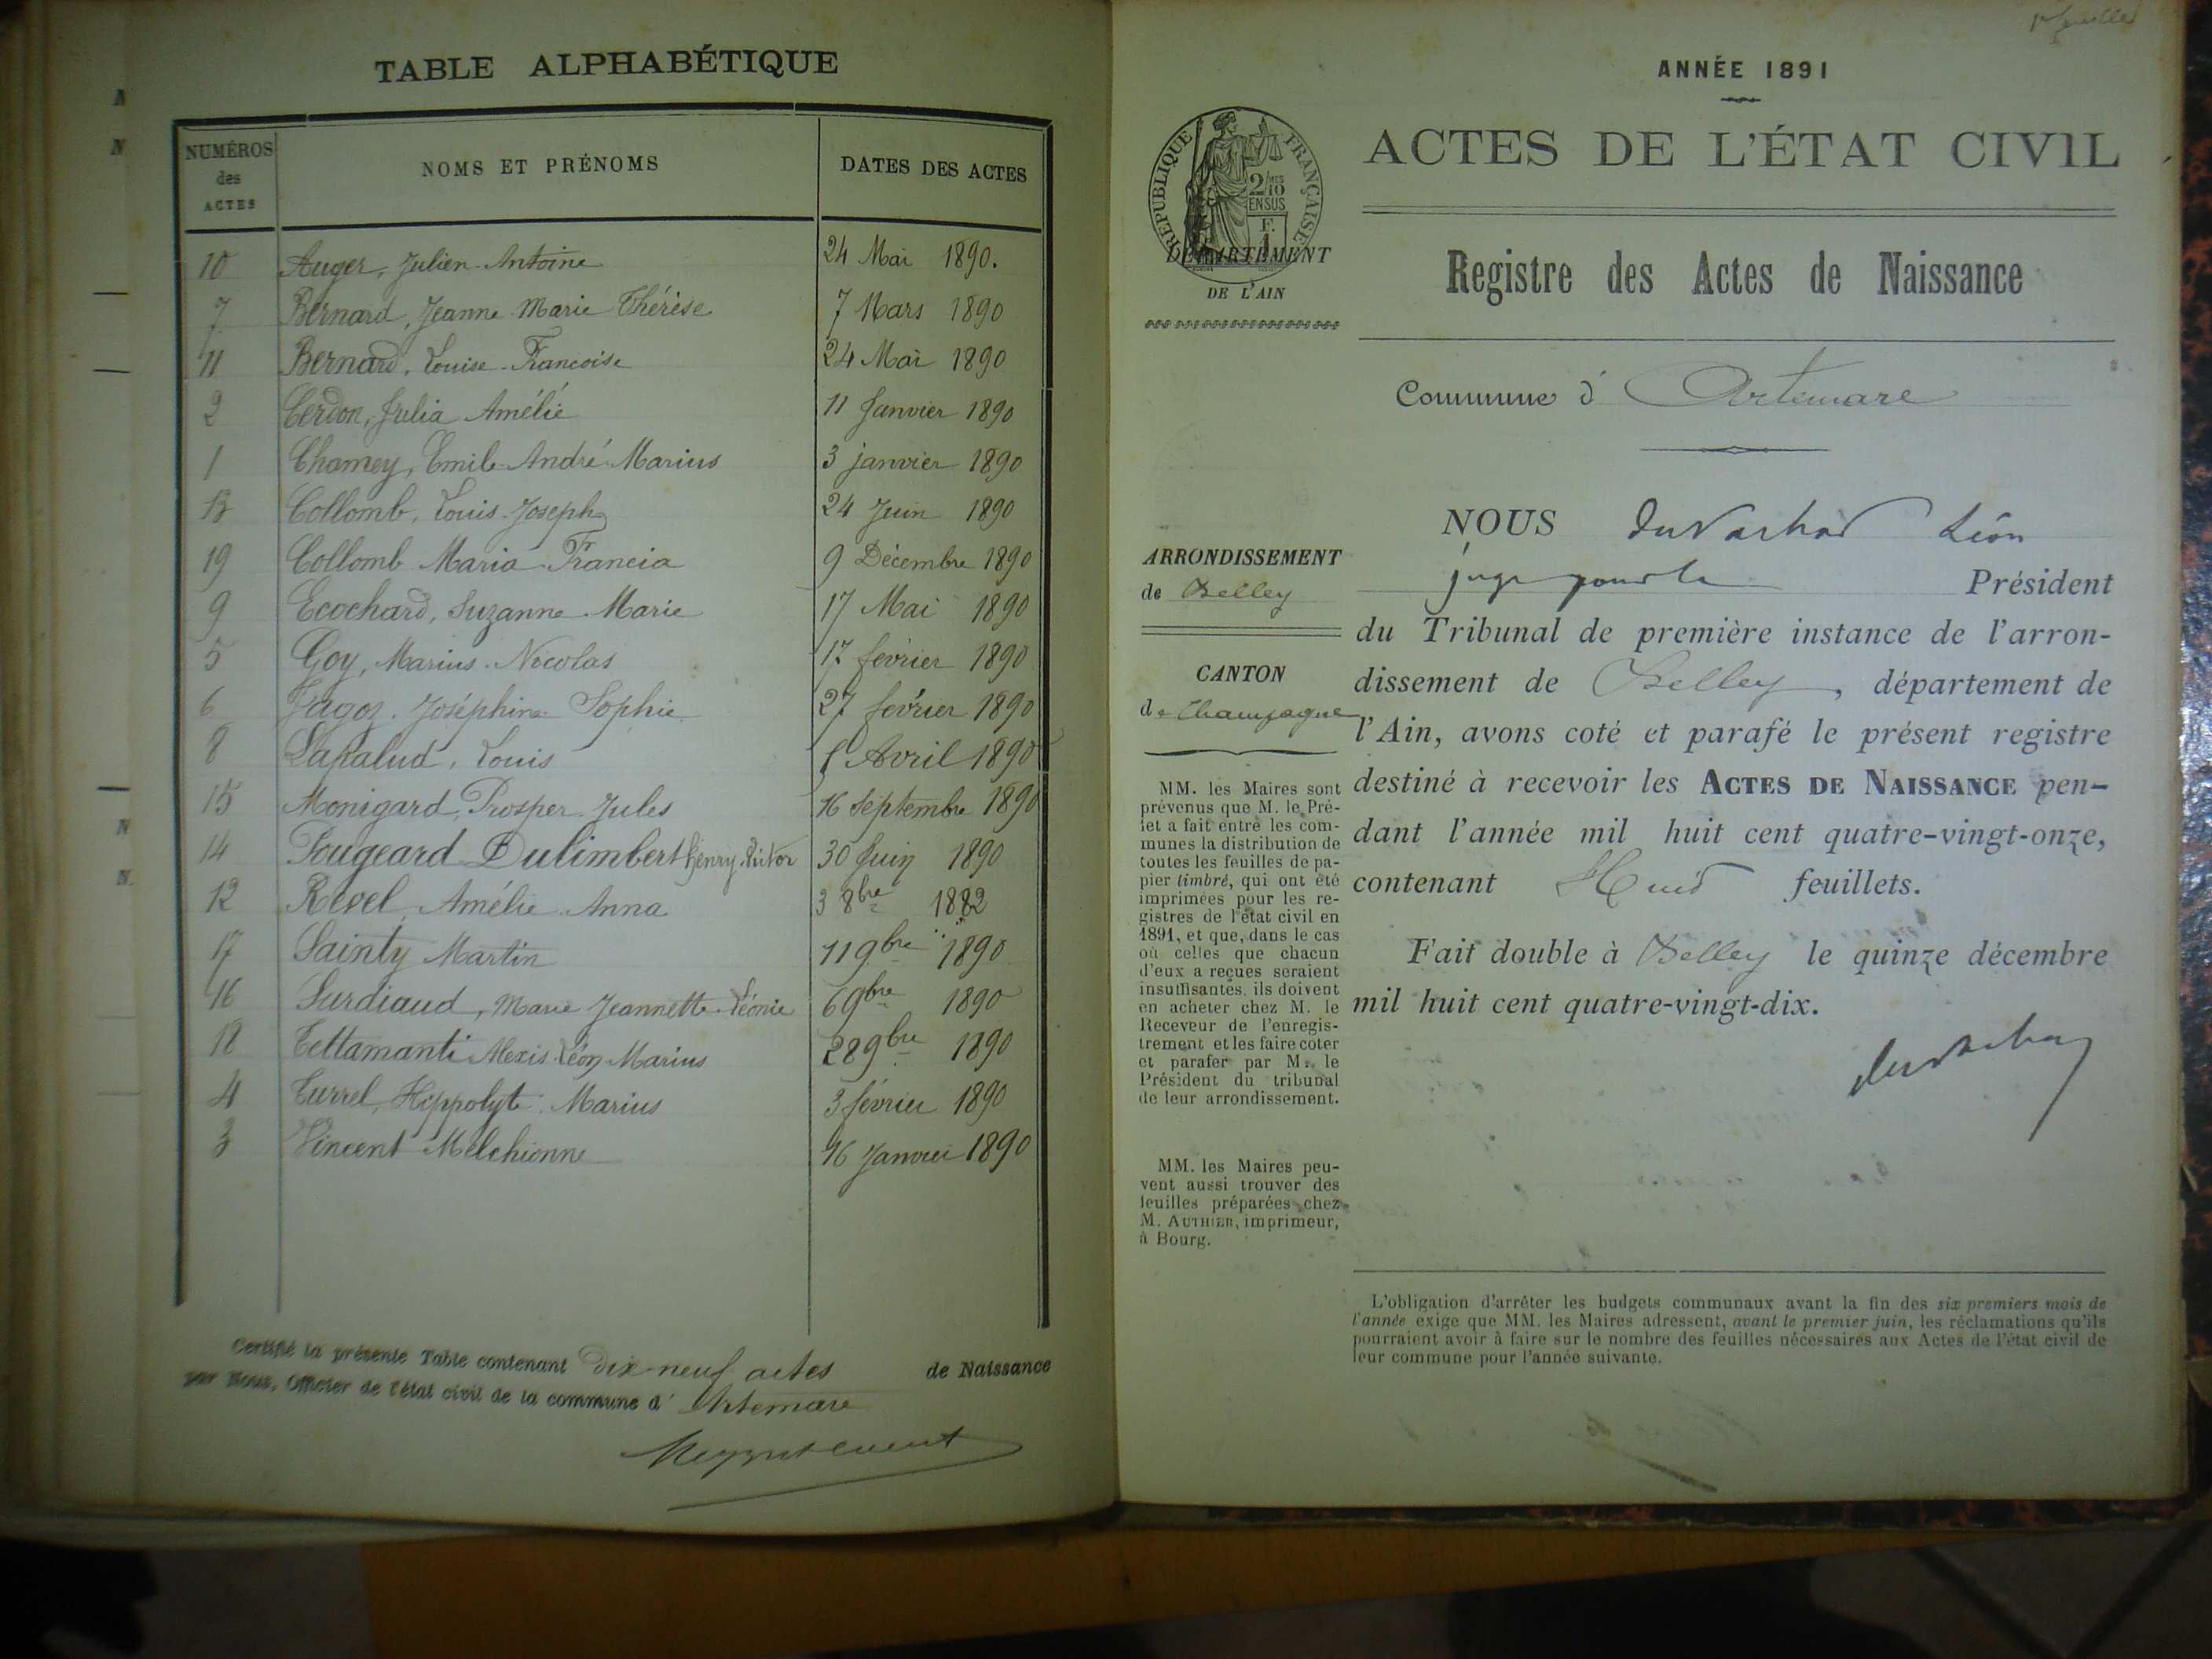 TABLE ALPHABÉTIQUE
NUMÉROS des ACTES NOMS ET PRÉNOMS DATES DES ACTES
10 Auger, Julien Antoine 24 Mai 1890.
7 Bernard, Jeanne Marie Thérèse 7 Mars 1890
11 Bernard, Louise Francoise 24 Mai 1890
2 Cerdon, Julia Amélie 11 Janvier 1890
1 Chamey, Emile André Marius 3 janvier 1890
13 Collomb, Louis Joseph 24 Juin 1890
19 Collomb Maria Francia 9 Décembre 1890
9 Ecochard, Suzanne Marie 17 Mai 1890
5 Goy, Marius Nicolas 17 février 1890
6 Joséphine Sophie 27 février 1890
8 Lapalud, Louis Avril 1890
15 Monigard, Prosper Jules 16 Septembre 1890
14 Pougeard Dulimbert Henry 30 Juin 1890
12 Revel Amélie Anna 3 8bre 1882
17 Sainty Martin 11 9bre 1890
16 Surdiaud, Marie Jeannette Léonie 6 9bre 1890
18 Tettamanti Alexis Léon Marius 28 9bre 1890
4 Turrel, Hippolyte Marius 3 février 1890
3 Vincent Melchionne 16 Janvier 1890
Certifié la présente Table contenant dix-neuf actes de Naissance
par Nous, Officier de l'état civil de la commune d' Artemare
ANNÉE 1891
RÉPUBLIQUE FRANÇAISE
2/10 EN SUS
F. 1
ACTES DE L'ÉTAT CIVIL
DÉPARTEMENT
DE L'AIN
Registre des Actes de Naissance
Commune d' Artemare
ARRONDISSEMENT
de Belley
CANTON
de Champagne
MM. les Maires sont
prévenus que M. le Pré-
fet a fait entre les com-
munes la distribution de
toutes les feuilles de pa-
pier timbré, qui ont été
imprimées pour les re-
gistres de l'état civil en
1891, et que, dans le cas
où celles que chacun
d'eux a reçues seraient
insuffisantes, ils doivent
en acheter chez M. le
Receveur de l'enregis-
trement et les faire coter
et parafer par M. le
Président du tribunal
de leur arrondissement.
MM. les Maires peu-
vent aussi trouver des
feuilles préparées chez
M. AUTHIER, imprimeur,
à Bourg.
NOUS Léon
juge pour le Président
du Tribunal de première instance de l'arron-
dissement de Belley, département de
l'Ain, avons coté et parafé le présent registre
destiné à recevoir les ACTES DE NAISSANCE pen-
dant l'année mil huit cent quatre-vingt-onze,
contenant Huit feuillets.
Fait double à Belley le quinze décembre
mil huit cent quatre-vingt-dix.
L'obligation d'arrêter les budgets communaux avant la fin des six premiers mois de
l'année exige que MM. les Maires adressent, avant le premier juin, les réclamations qu'ils
pourraient avoir à faire sur le nombre des feuilles nécessaires aux Actes de l'état civil de
leur commune pour l'année suivante.